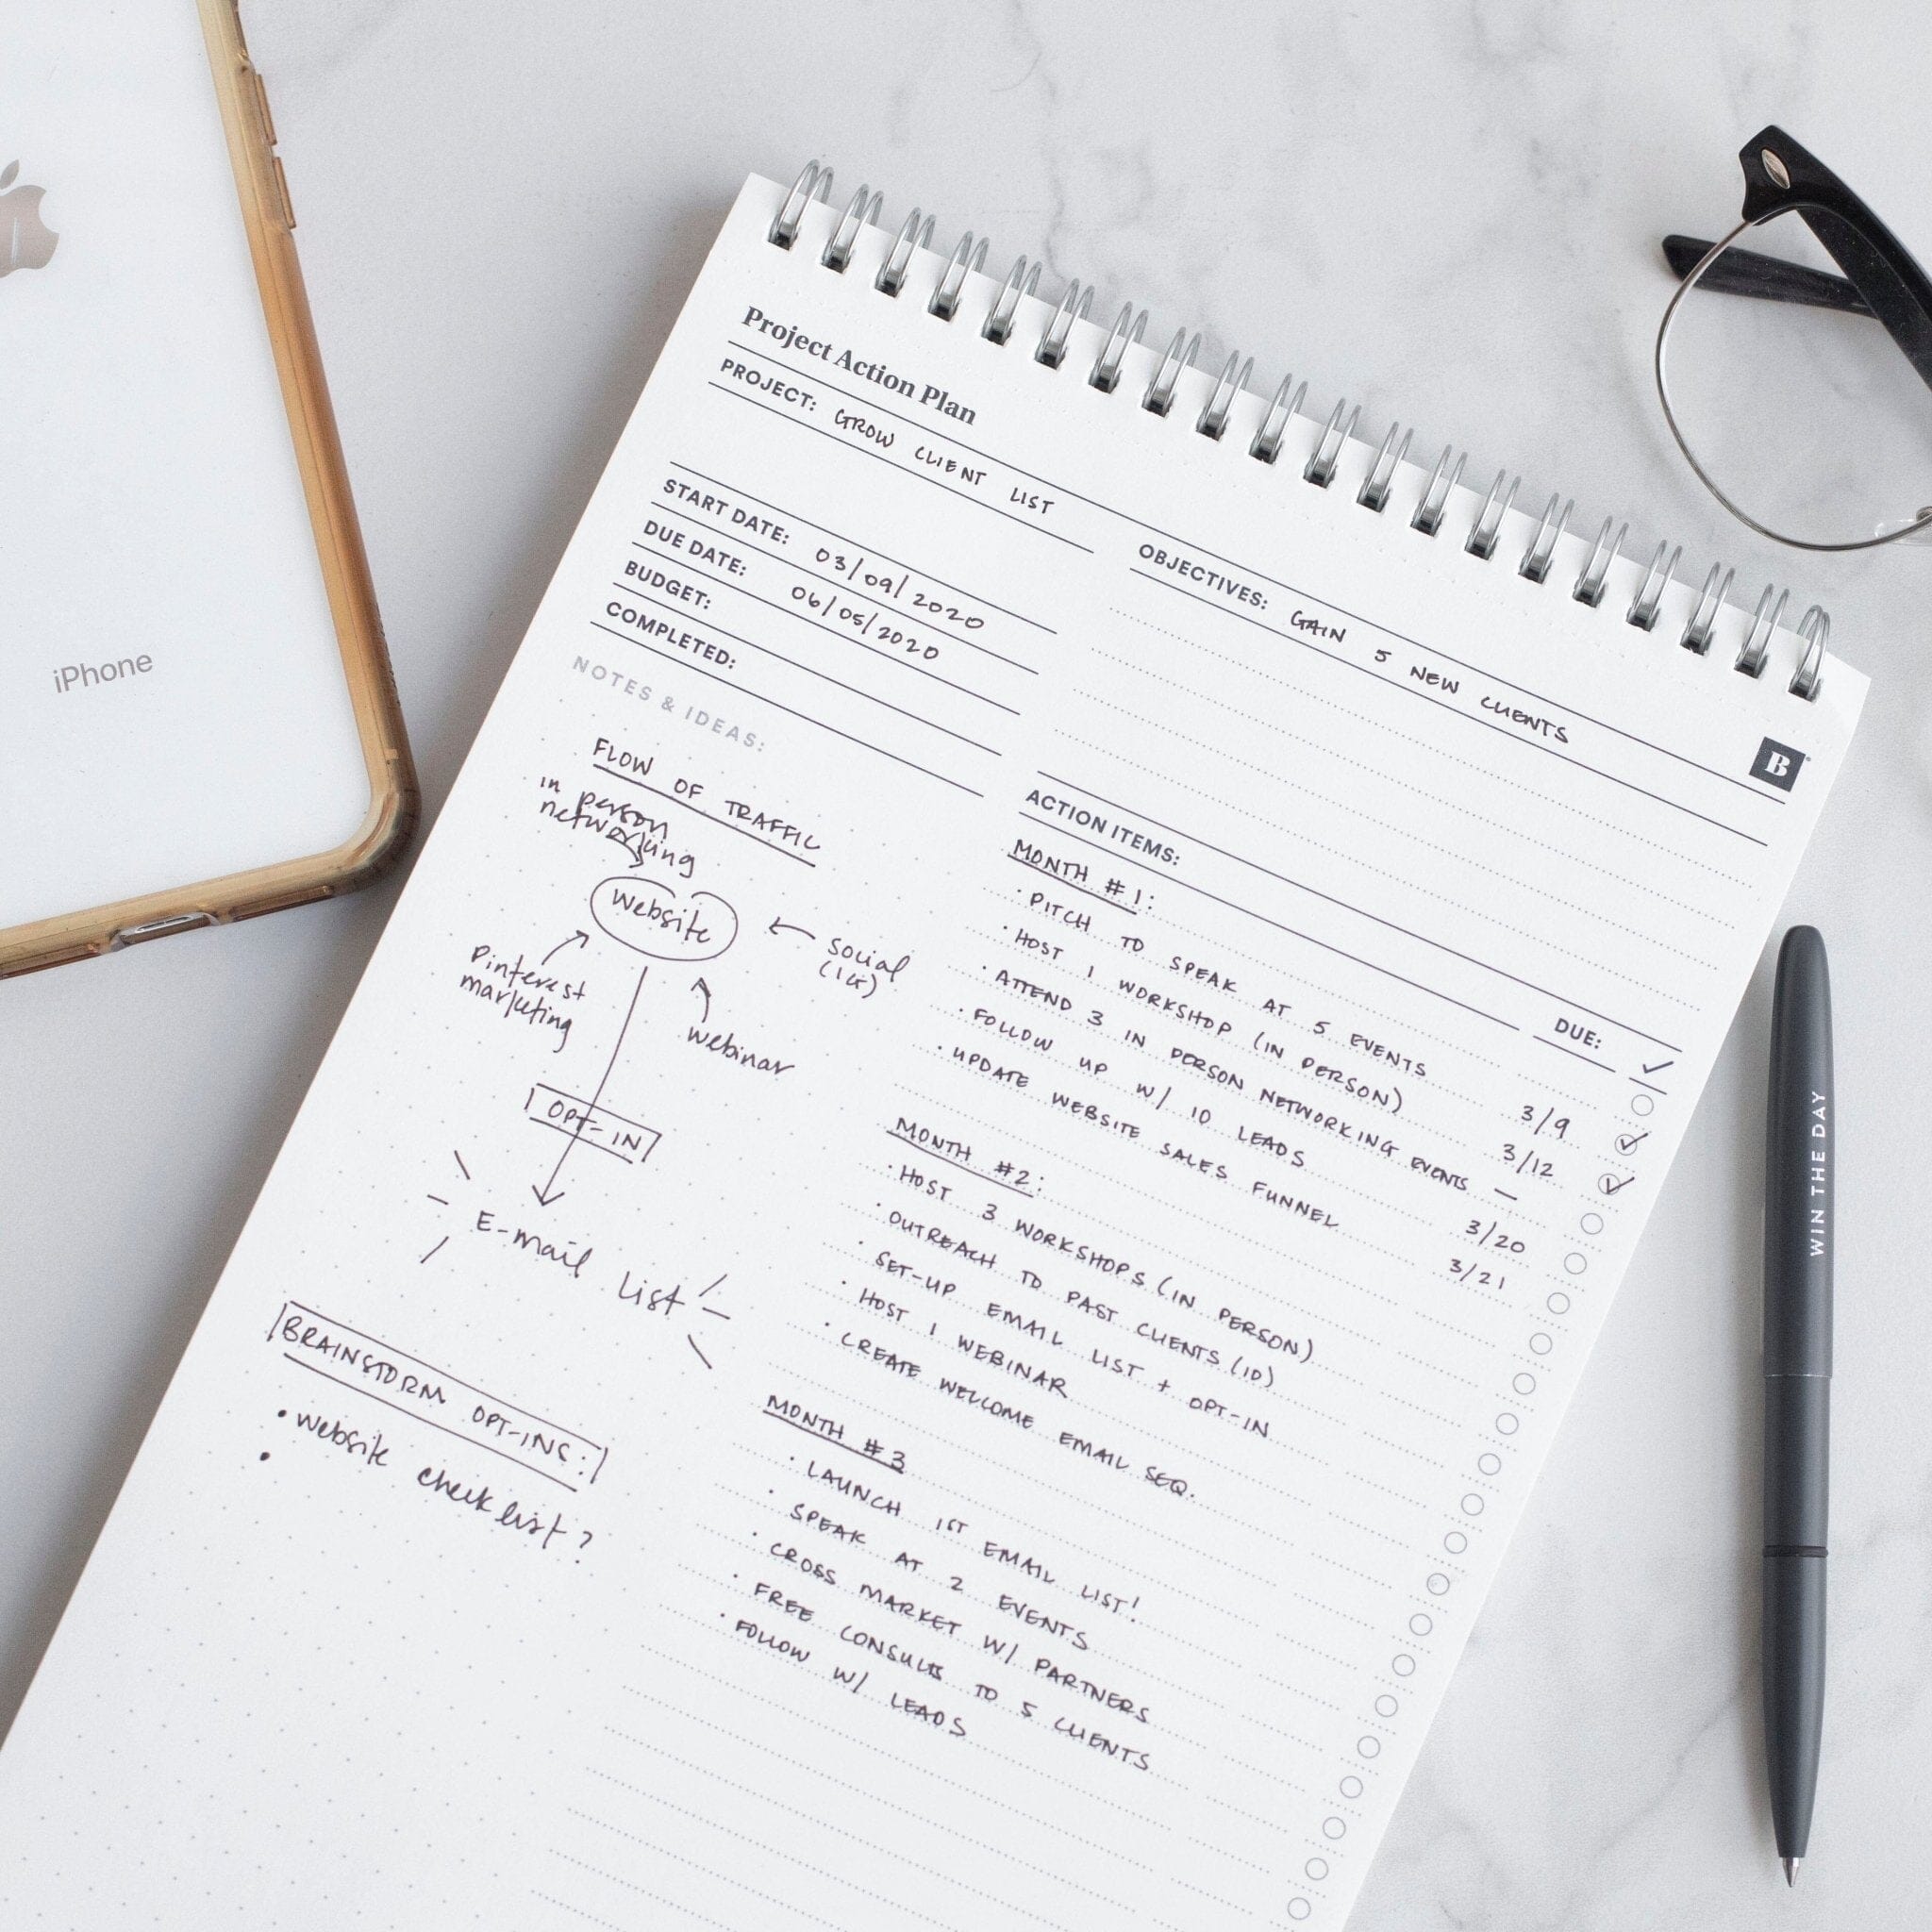 iPhone
Project Action Plan
PROJECT: GROW CLIENT LIST
START DATE: 03/09/2020
DUE DATE: 06/05/2020
BUDGET:
COMPLETED:
OBJECTIVES: GAIN 5 NEW CLIENTS
B
NOTES & IDEAS:
FLOW OF TRAFFIC
in person
networking
website
social
(IG)
Pinterest
marketing
webinar
OPT-IN
E-mail list
BRAINSTORM OPT-INS:
• website checklist?
•
ACTION ITEMS:
DUE: ✓
MONTH #1:
· PITCH TO SPEAK AT 5 EVENTS 3/9
· HOST 1 WORKSHOP (IN PERSON) 3/12
· ATTEND 3 IN PERSON NETWORKING EVENTS —
· FOLLOW UP W/ 10 LEADS 3/20
· UPDATE WEBSITE SALES FUNNEL 3/21
MONTH #2:
· HOST 3 WORKSHOPS (IN PERSON)
· OUTREACH TO PAST CLIENTS (10)
· SET-UP EMAIL LIST + OPT-IN
· HOST 1 WEBINAR
· CREATE WELCOME EMAIL SEQ.
MONTH #3
· LAUNCH 1ST EMAIL LIST!
· SPEAK AT 2 EVENTS
· CROSS MARKET W/ PARTNERS
· FREE CONSULTS TO 5 CLIENTS
· FOLLOW W/ LEADS
WIN THE DAY